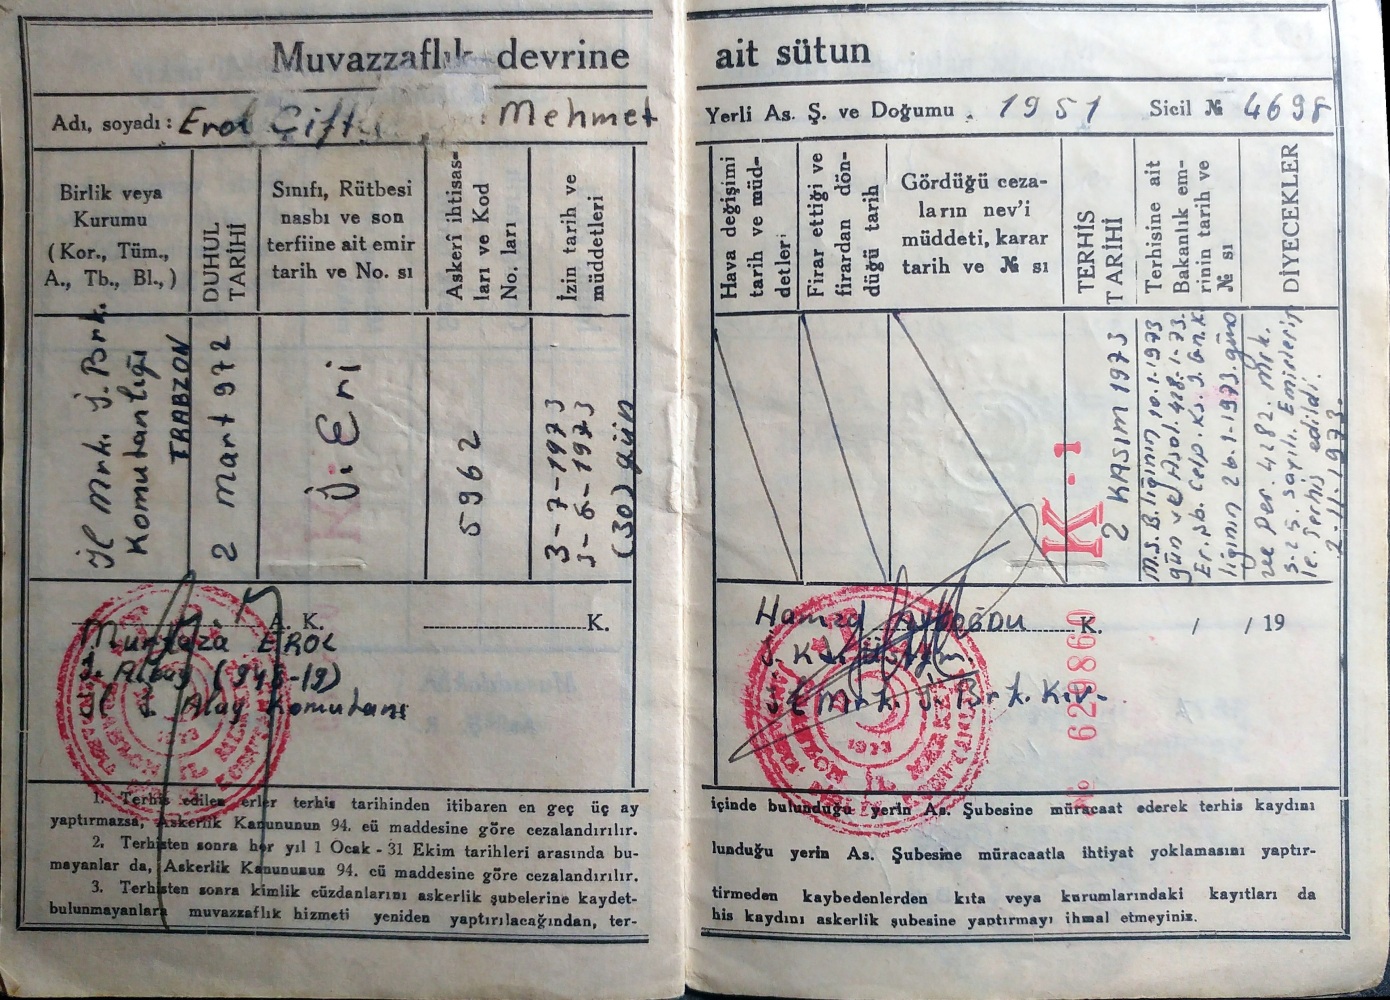 Muvazzaflık devrine
Adı, soyadı : Erol Çift : Mehmet
Birlik veya
Kurumu
(Kor., Tüm.,
A., Tb., Bl.,)
DUHUL
TARİHİ
Sınıfı, Rütbesi
nasbı ve son
terfiine ait emir
tarih ve No. sı
Askerî ihtisas-
ları ve Kod
No. ları
İzin tarih ve
müddetleri
İl Mrk. J. Brk.
Komutanlığı
TRABZON
2 Mart 972
J. Eri
5962
3-7-1973
(30) gün
A. K.
K.
Murtaza EROL
J. Albay
İl J. Alay Komutanı
1. Terhis edilen erler terhis tarihinden itibaren en geç üç ay
yaptırmazsa, Askerlik Kanununun 94. cü maddesine göre cezalandırılır.
2. Terhisten sonra her yıl 1 Ocak - 31 Ekim tarihleri arasında bu-
mayanlar da, Askerlik Kanununun 94. cü maddesine göre cezalandırılır.
3. Terhisten sonra kimlik cüzdanlarını askerlik şubelerine kaydet-
bulunmayanlara muvazzaflık hizmeti yeniden yaptırılacağından, ter-
ait sütun
Yerli As. Ş. ve Doğumu . 1951 Sicil № 4698
Hava değişimi
tarih ve müd-
detleri
Firar ettiği ve
firardan dön-
düğü tarih
Gördüğü ceza-
ların nev'i
müddeti, karar
tarih ve № sı
TERHİS
TARİHİ
Terhisine ait
Bakanlık em-
rinin tarih ve
№ sı
DİYECEKLER
K. 1
2 KASIM 1973
M.S.B.lığının 10.1.1973
lığının 26.1.1973 gün
ve Per. 4282. Mrk.
sayılı Emirleriy
le terhis edildi.
2-11-1973.
K.
/ / 19
Hamza
İl Mrk. J. Brk. K.
№ 629860
1973
içinde bulunduğu yerin As. Şubesine müracaat ederek terhis kaydını
lunduğu yerin As. Şubesine müracaatla ihtiyat yoklamasını yaptır-
tirmeden kaybedenlerden kıta veya kurumlarındaki kayıtları da
his kaydını askerlik şubesine yaptırmayı ihmal etmeyiniz.